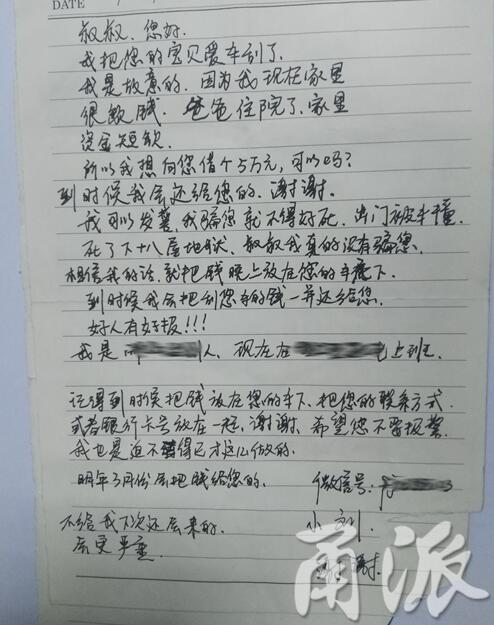 DATE
叔叔、您好.
我把您的宝贝爱车刮了.
我是故意的. 因为我现在家里
很缺钱. 爸爸住院了、家里
资金短缺
所以我想向您借个5万元，可以吗？
到时候我会还给您的. 谢谢.
我可以发誓，我骗您就不得好死. 出门被车撞.
死了下十八层地狱. 叔叔我真的没有骗您.
相信我的话. 就把钱晚上放在您的车底下.
到时候我会把刮您车的钱一并还给您.
好人有好报!!!
我是 人, 现在在 上班.
记得到时候把钱放在您的车下、把您的联系方式.
或者银行卡号放在一起, 谢谢、希望您不要报警.
我也是迫不得已才这么做的.
明年3月份会把钱给您的.
微信号:
不给我下次还会来的. 小刘.
会更严重 谢谢.
甬派